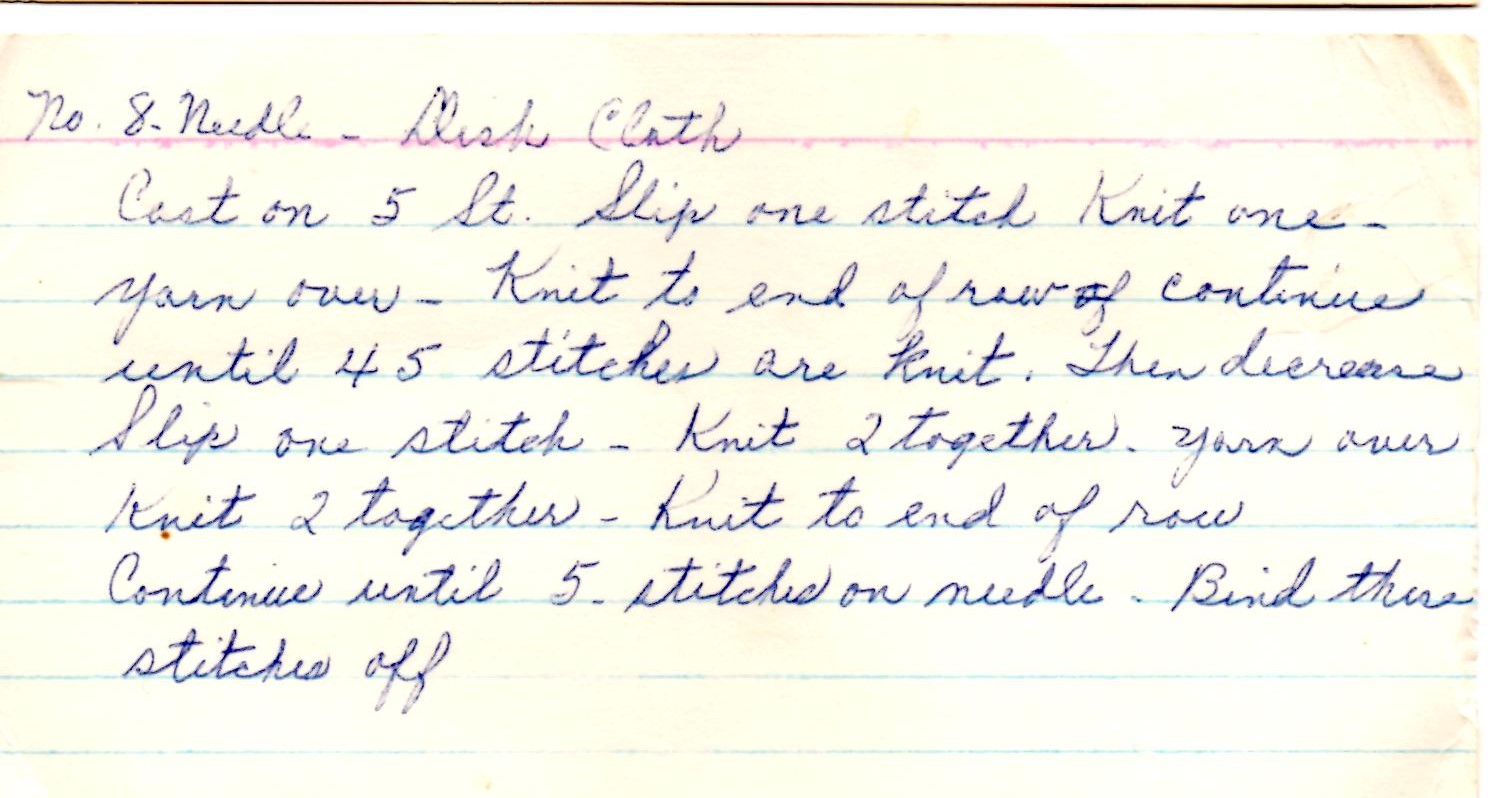 No. 8- Needle - Dish Cloth
Cast on 5 St. Slip one stitch Knit one -
yarn over - Knit to end of row of continue
until 45 stitches are knit. Then decrease
Slip one stitch - Knit 2 together - yarn over
Knit 2 together - Knit to end of row
Continue until 5 - stitches on needle - Bind these
stitches off